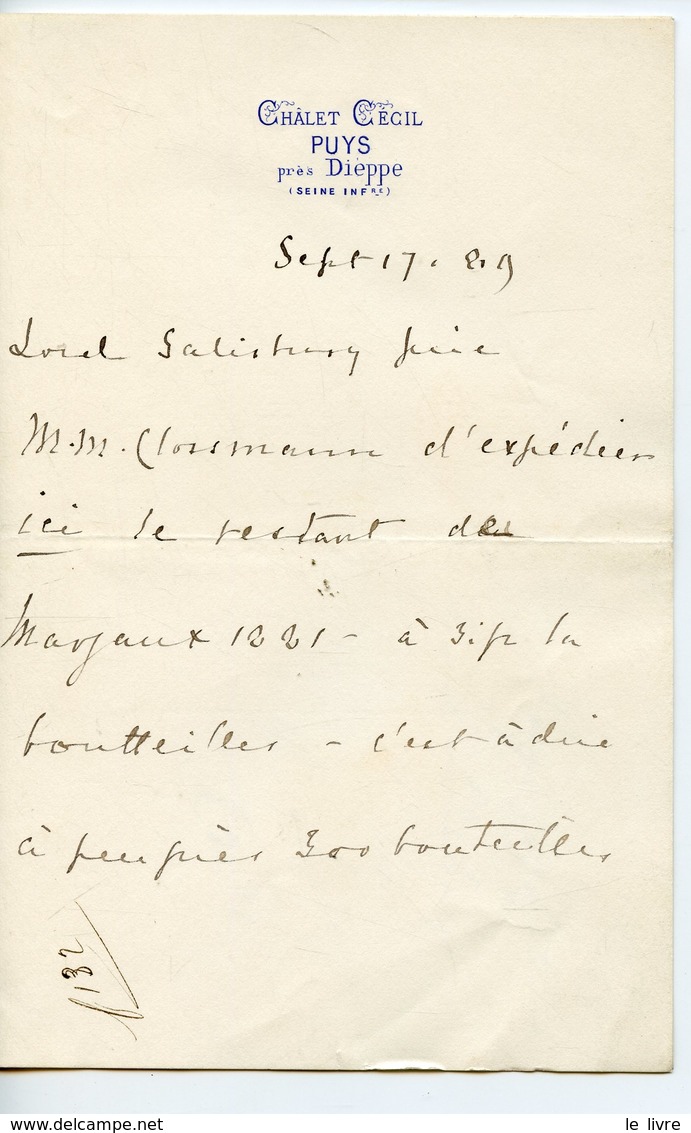 CHÂLET CÉCIL
PUYS
près Dieppe
(SEINE INFRE)
Sept 17. 89
Lord Salisbury prie
M.M. Clossmann d'expédier
ici le restant des
Margaux 1881 - à 3 la
boutteilles - c'est à dire
à peu près 300 boutteilles
132
le livre